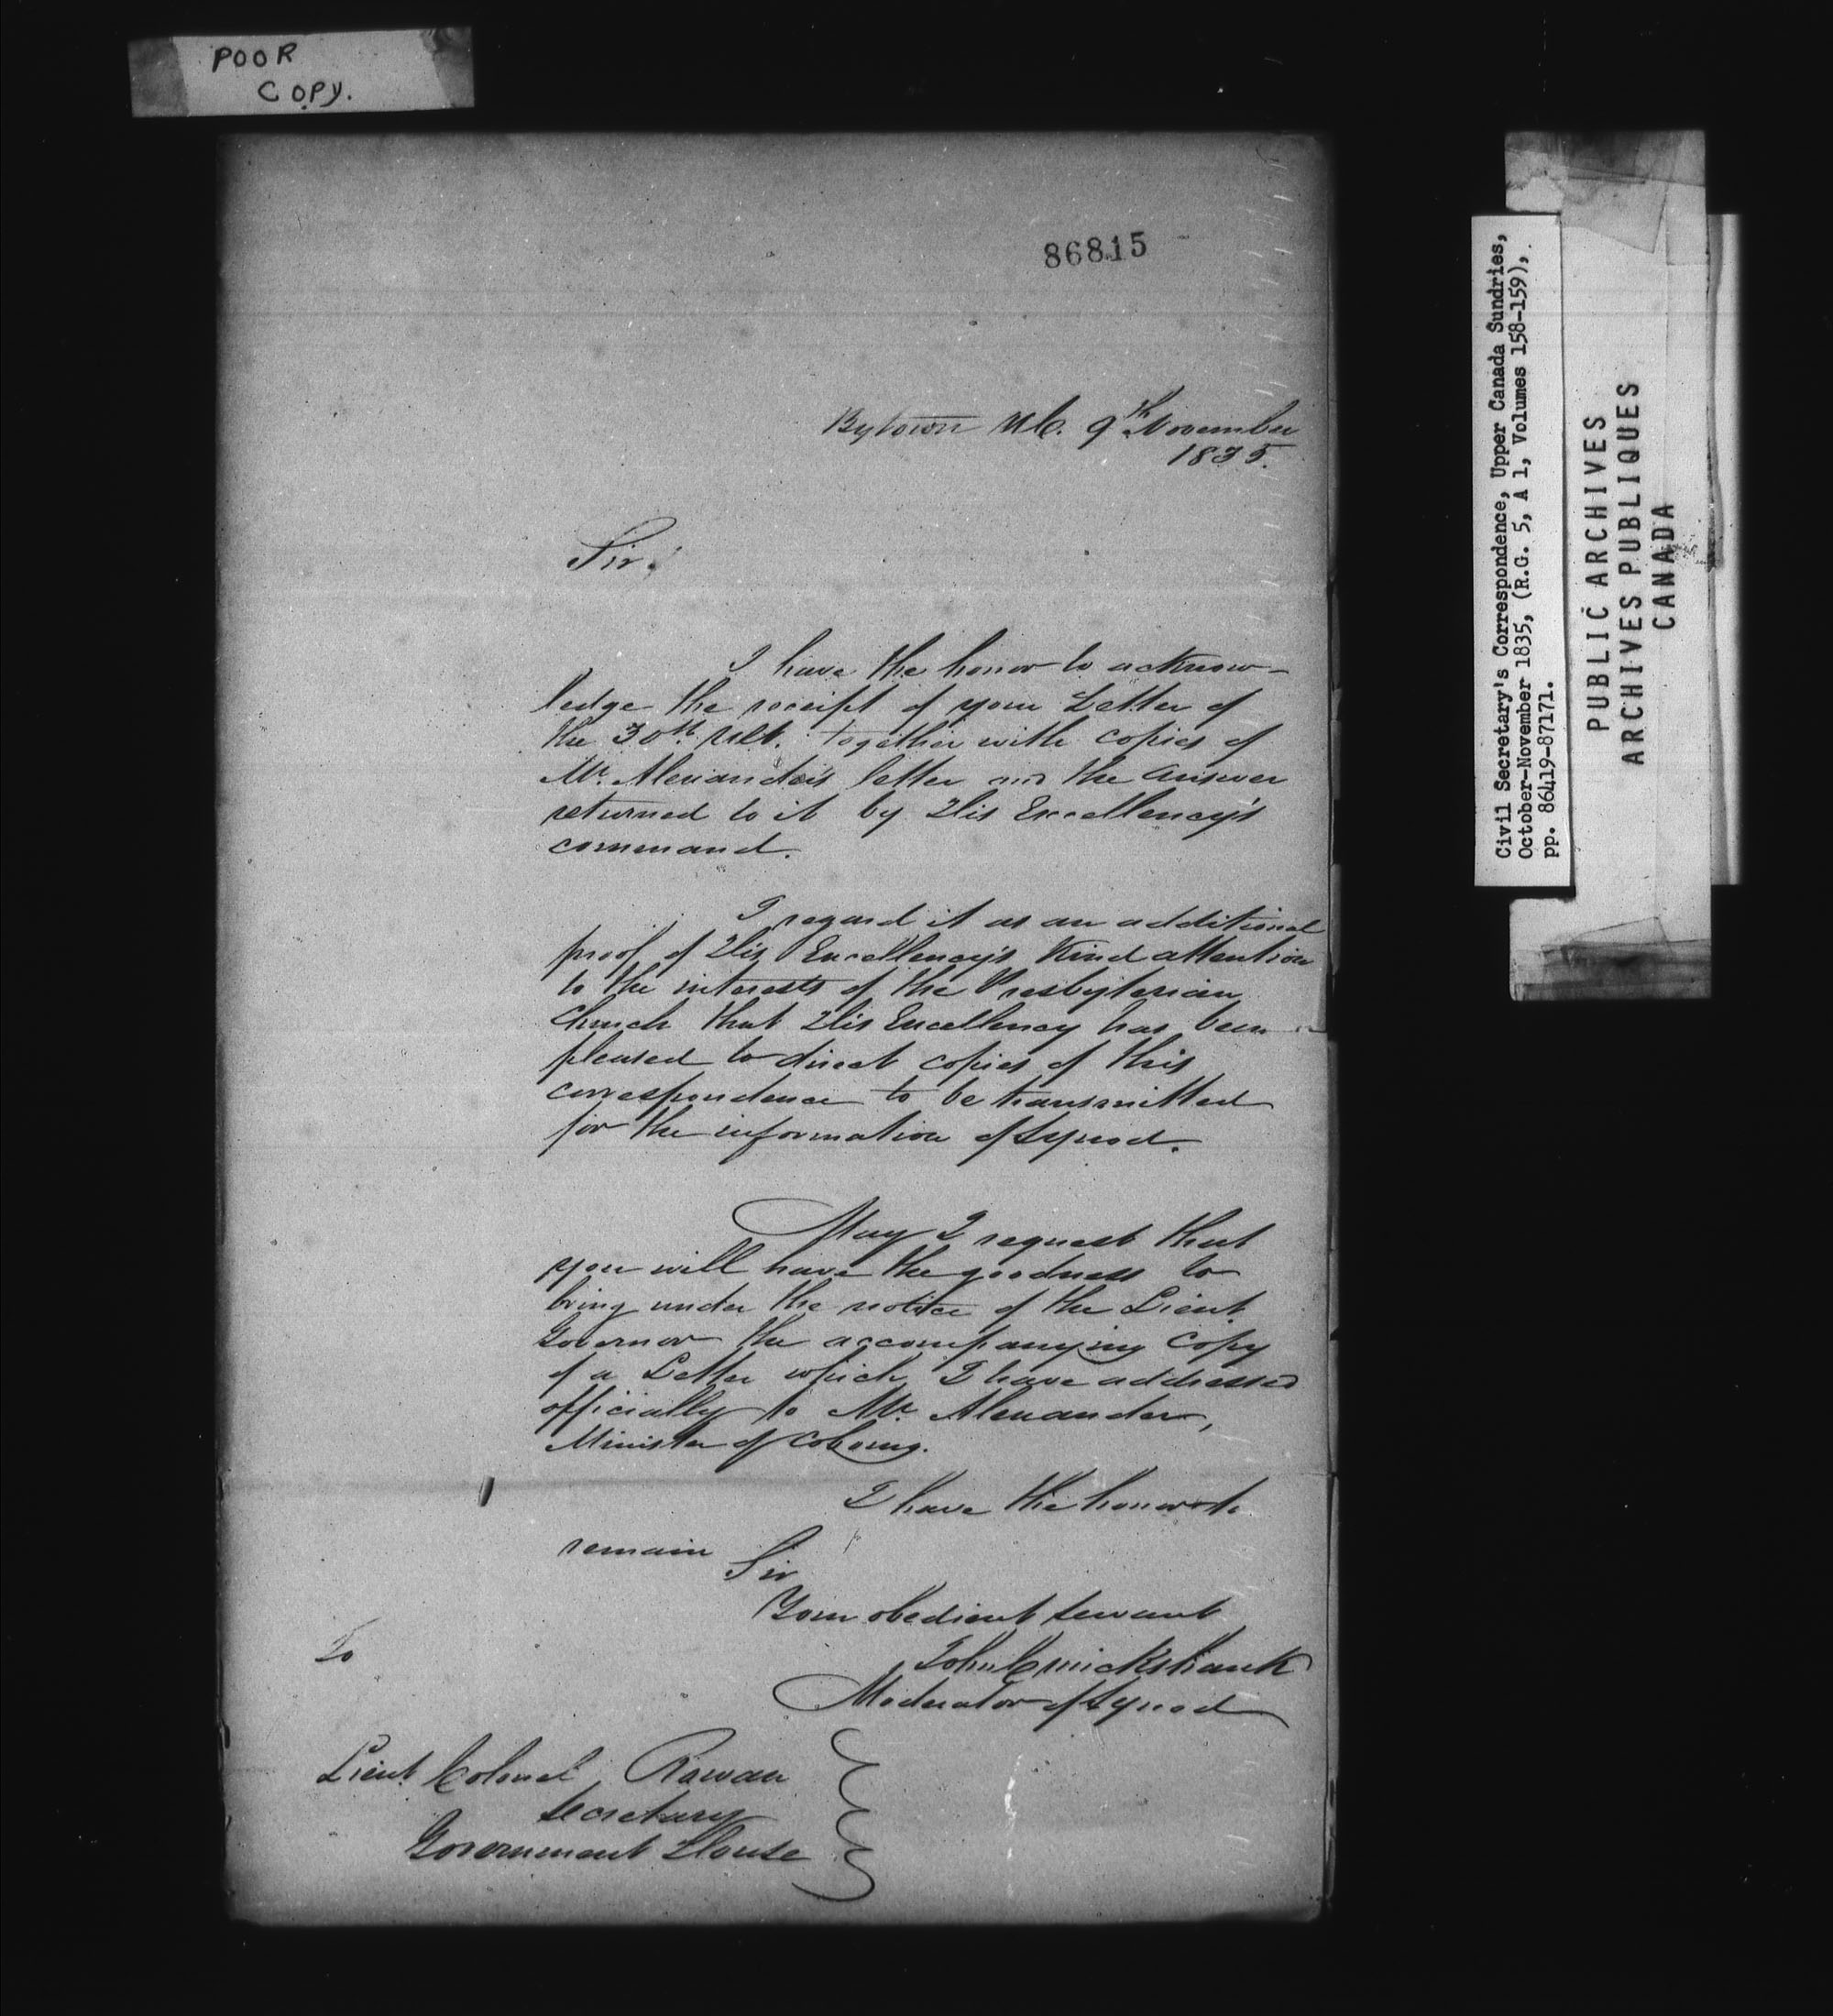 POOR
COPY.
86815
Bytown U.C. 9th November
1835.
Sir.
I have the honor to acknow-
ledge the receipt of your Letter of
the 30th Ult. together with copies of
Mr. Alexander's letter and the Answer
returned to it by His Excellency's
command.
I regard it as an additional
proof of His Excellency's Kind attention
to the interests of the Presbyterian
Church that His Excellency has been
pleased to direct copies of this
correspondence to be transmitted
for the information of Synod.
May I request that
you will have the goodness to
bring under the notice of the Lieut.
Governor the accompanying Copy
of a Letter which I have addressed
officially to Mr. Alexander,
Minister of Cobourg.
I have the honor to
remain
Sir
Your obedient servant
John Cruickshank
Moderator of Synod
To
Lieut. Colonel Rowan
Secretary
Government House
Civil Secretary's Correspondence, Upper Canada Sundries,
October-November 1835, (R.G. 5, A 1, Volumes 158-159),
pp. 86419-87171.
PUBLIC ARCHIVES
ARCHIVES PUBLIQUES
CANADA